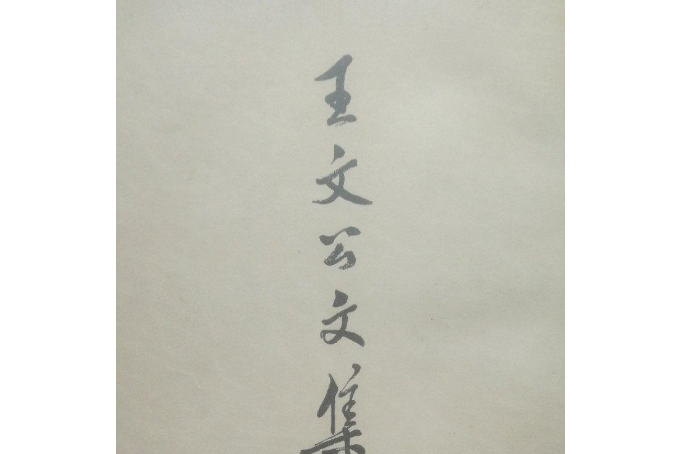 王文公文集